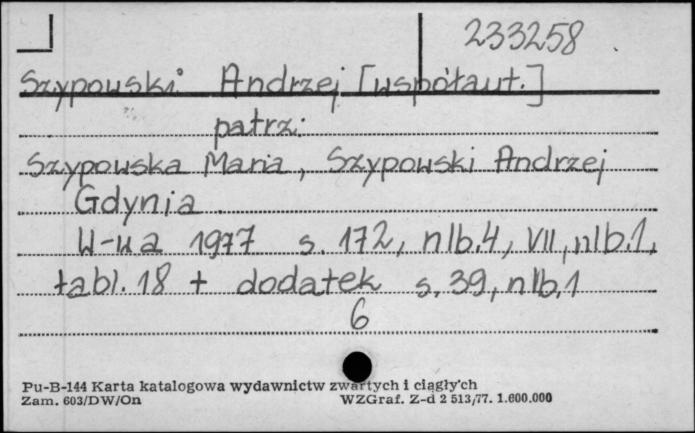 233258
Szypowski Andrzej [współaut.]
patrz:
Szypowska Maria, Szypowski Andrzej
Gdynia
W-wa 1977 s. 172, nlb.4, VII, nlb.1,
tabl. 18 + dodatek s. 39, nlb.1
6
Pu-B-144 Karta katalogowa wydawnictw zwartych i ciągłych
Zam. 603/DW/On WZGraf. Z-d 2 513/77. 1.600.000